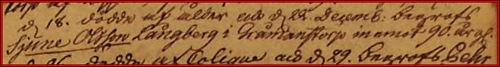 d 18. dödde af ålder och d 26. Decemb: begrofs
Sjune Olsson Långberg i Trumanstorp inemot 90. år gl.
d 26. dödde af Colique och d 29. begrofs Pehr